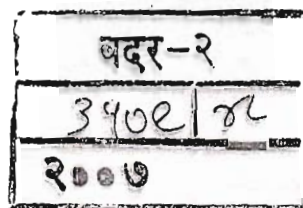 बदर-२
३५०९/
२००७